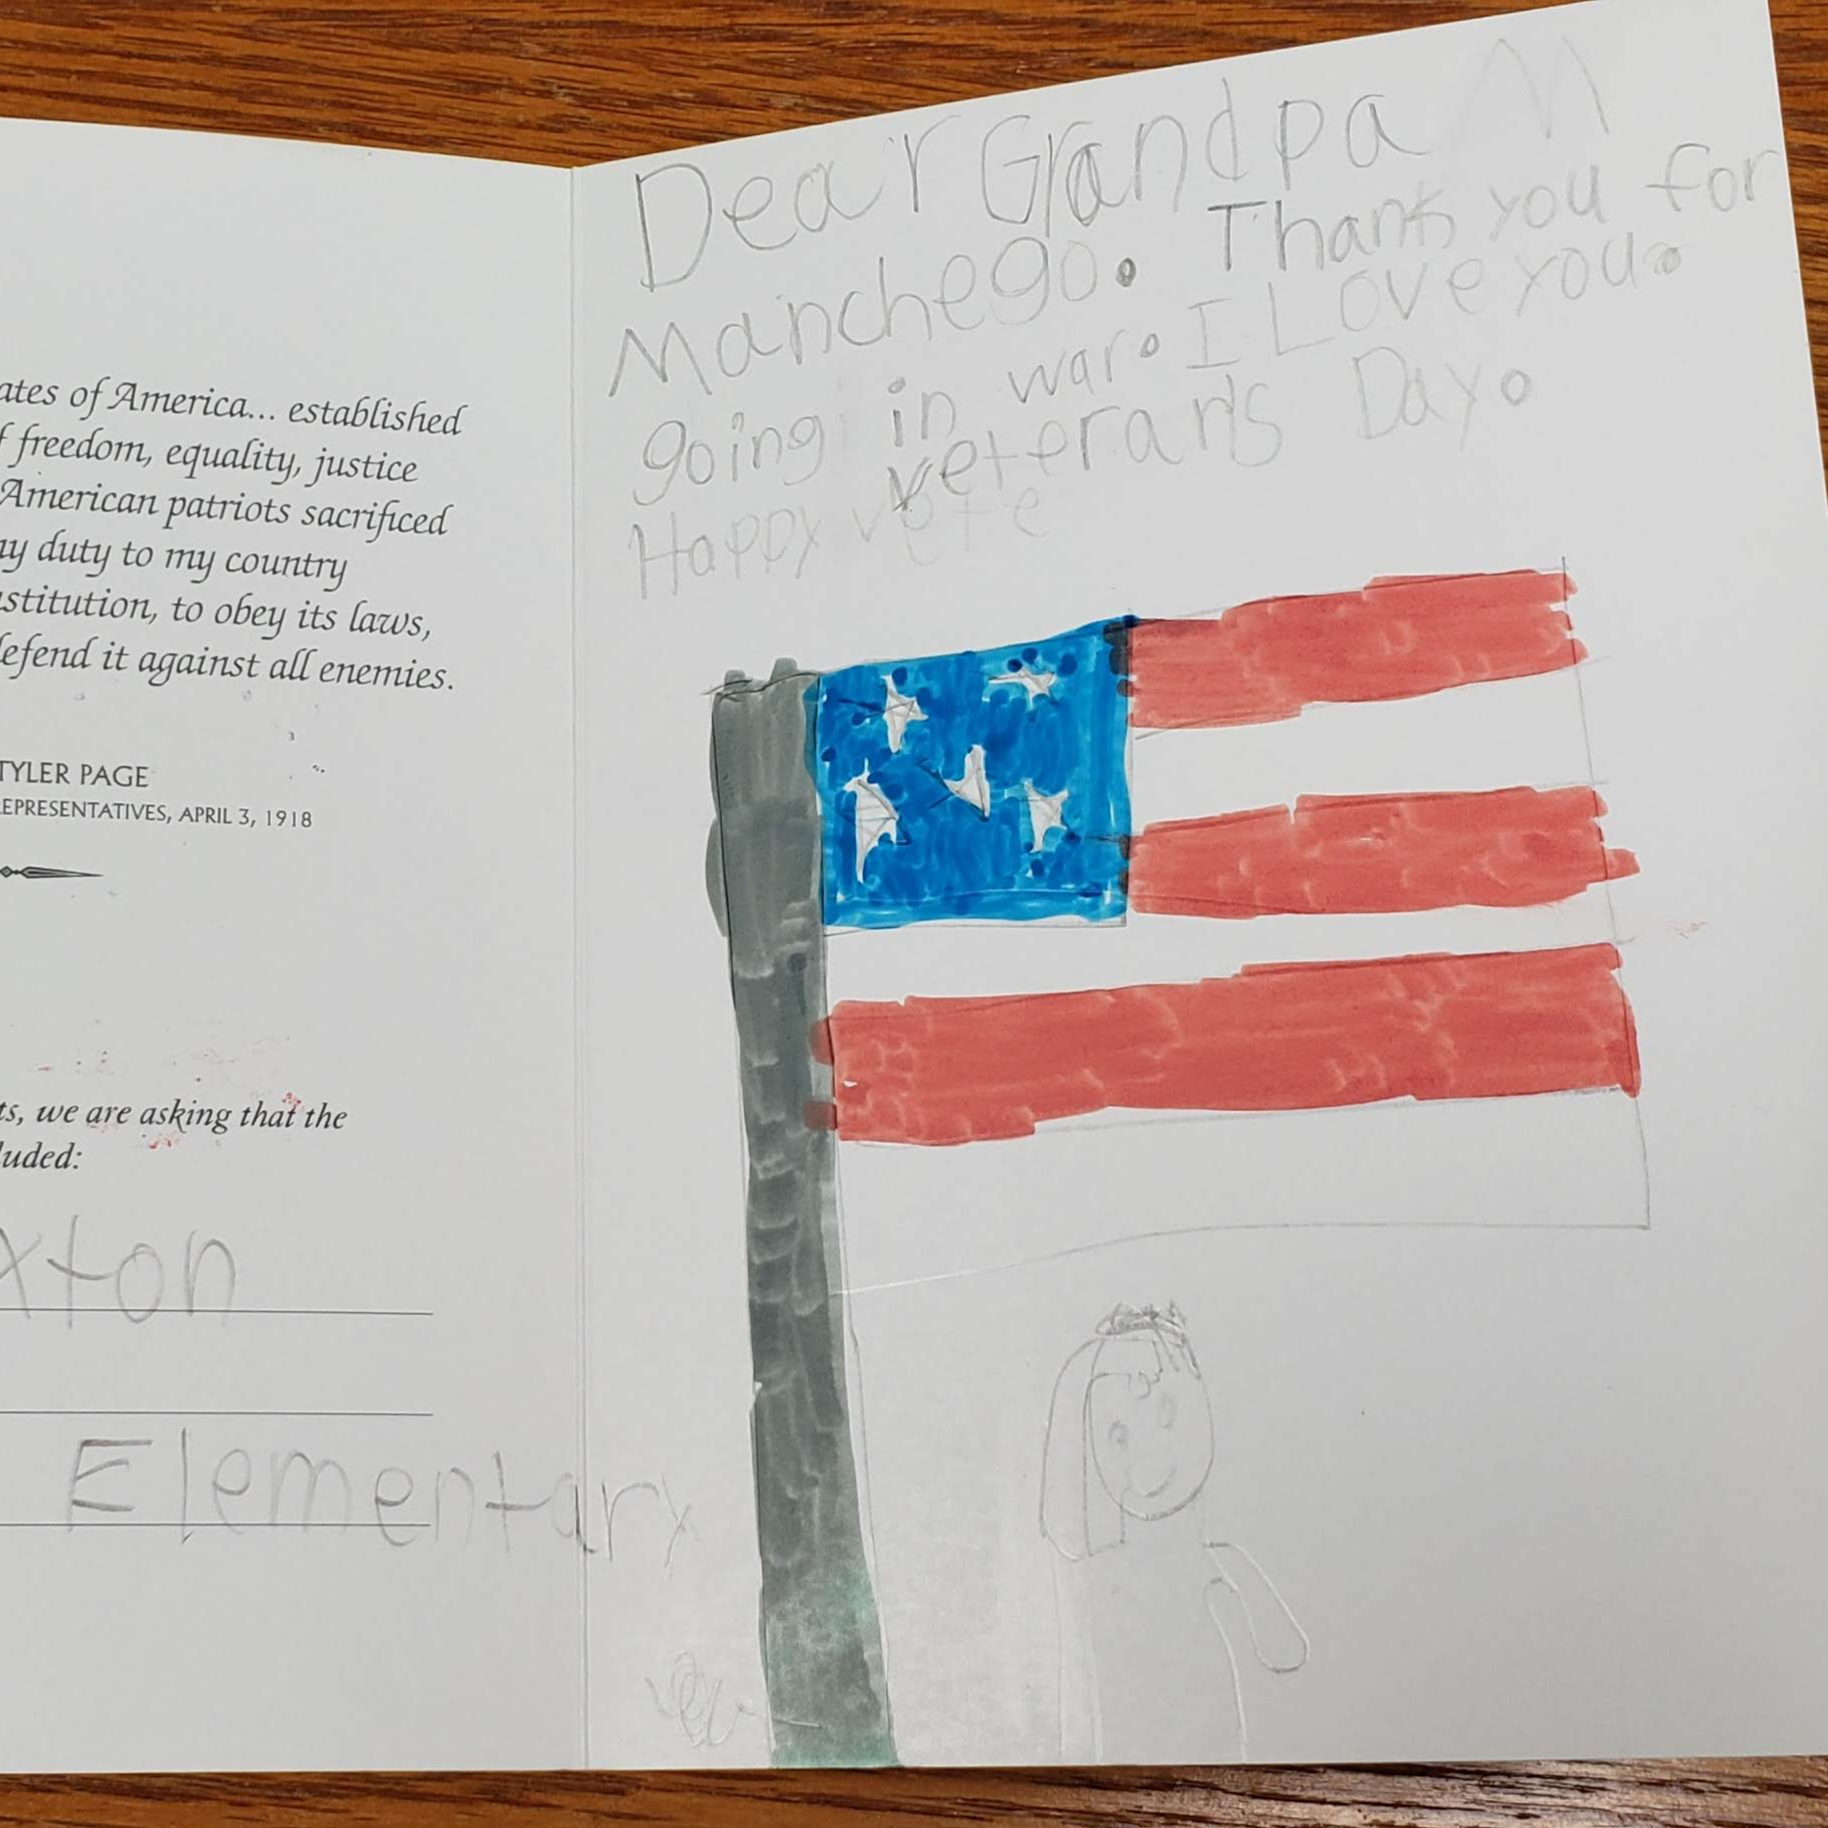 ates of America... established
f freedom, equality, justice
American patriots sacrificed
my duty to my country
nstitution, to obey its laws,
defend it against all enemies.
TYLER PAGE
REPRESENTATIVES, APRIL 3, 1918
ts, we are asking that the
luded:
xton
Elementary
Dear Grandpa M
Manchego. Thank you for
going in war. I Love you.
veteran's Day.
Happy vete